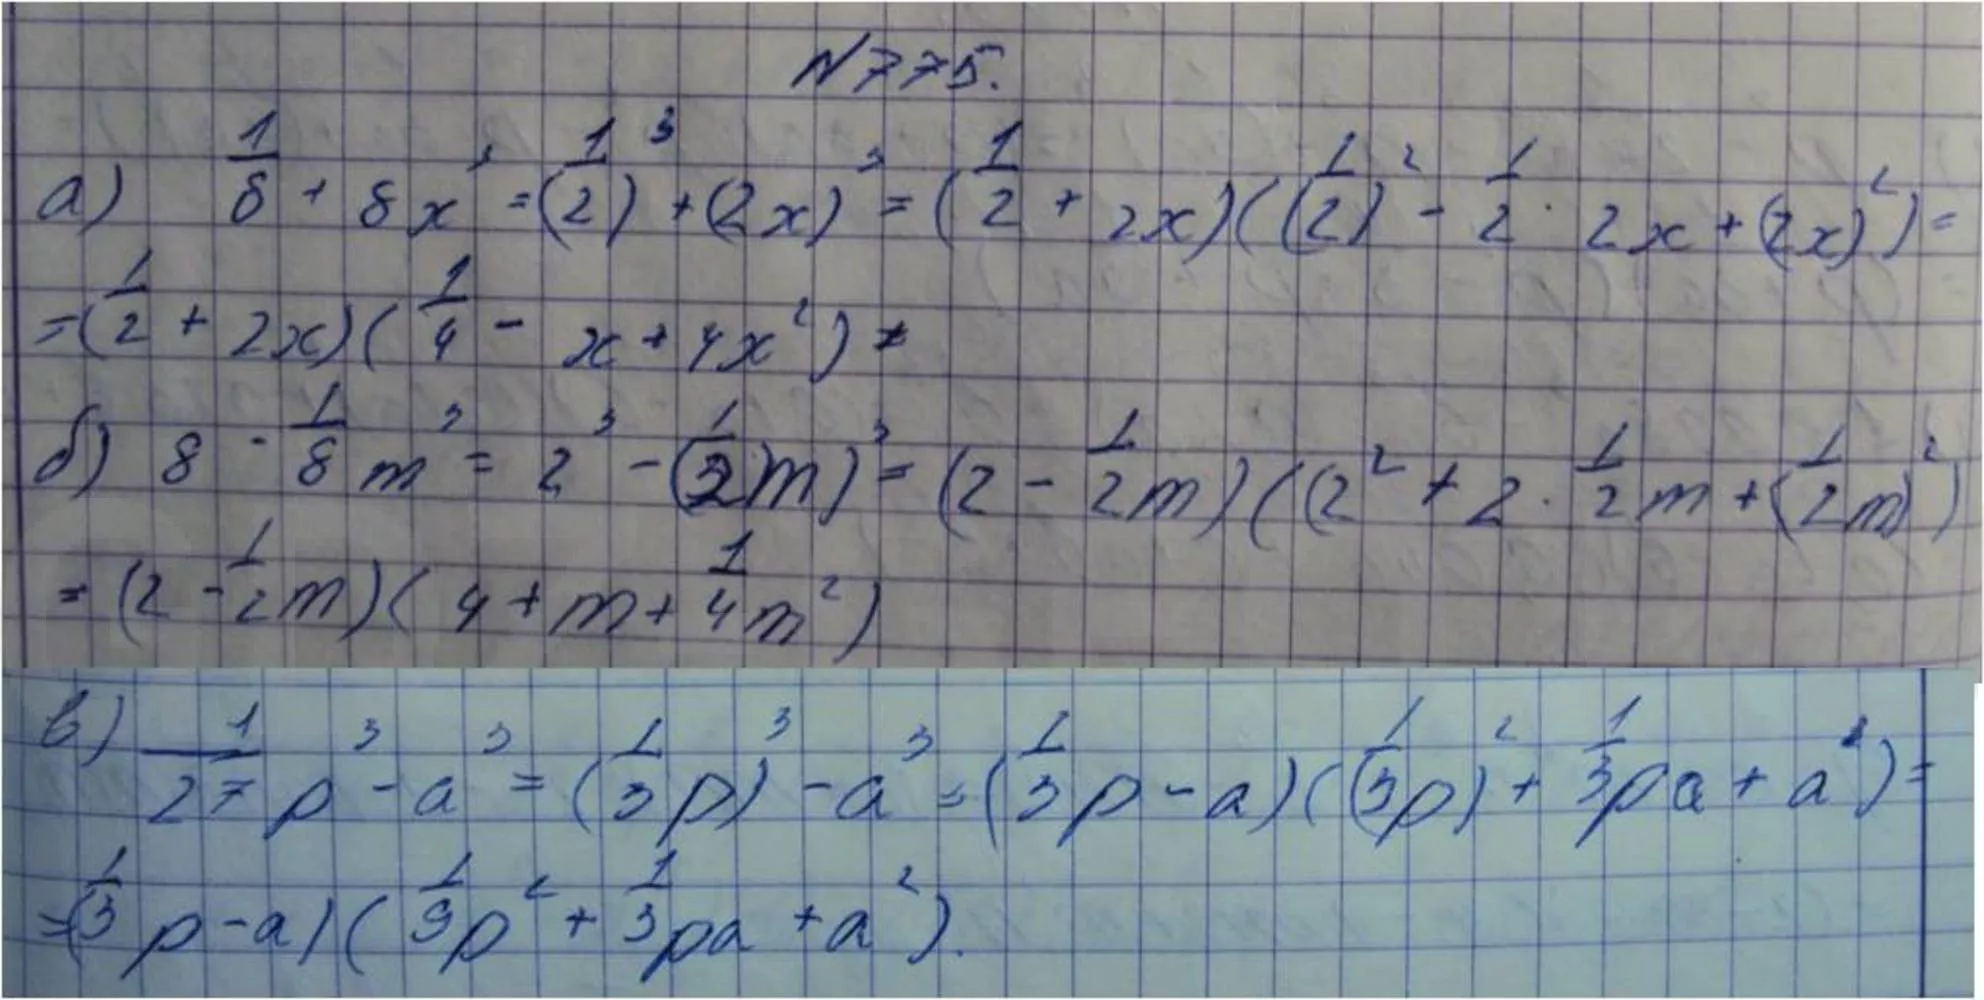 N 775.
а) 1/8 + 8x³ = (1/2)³ + (2x)³ = (1/2 + 2x)((1/2)² - 1/2 · 2x + (2x)²) =
= (1/2 + 2x)(1/4 - x + 4x²)
б) 8 - 1/8 m³ = 2³ - (1/2 m)³ = (2 - 1/2 m)((2² + 2 · 1/2 m + (1/2 m)²)
= (2 - 1/2 m)(4 + m + 1/4 m²)
в) 1/27 p³ - a³ = (1/3 p)³ - a³ = (1/3 p - a)((1/3 p)² + 1/3 pa + a²) =
= (1/3 p - a)(1/9 p² + 1/3 pa + a²).